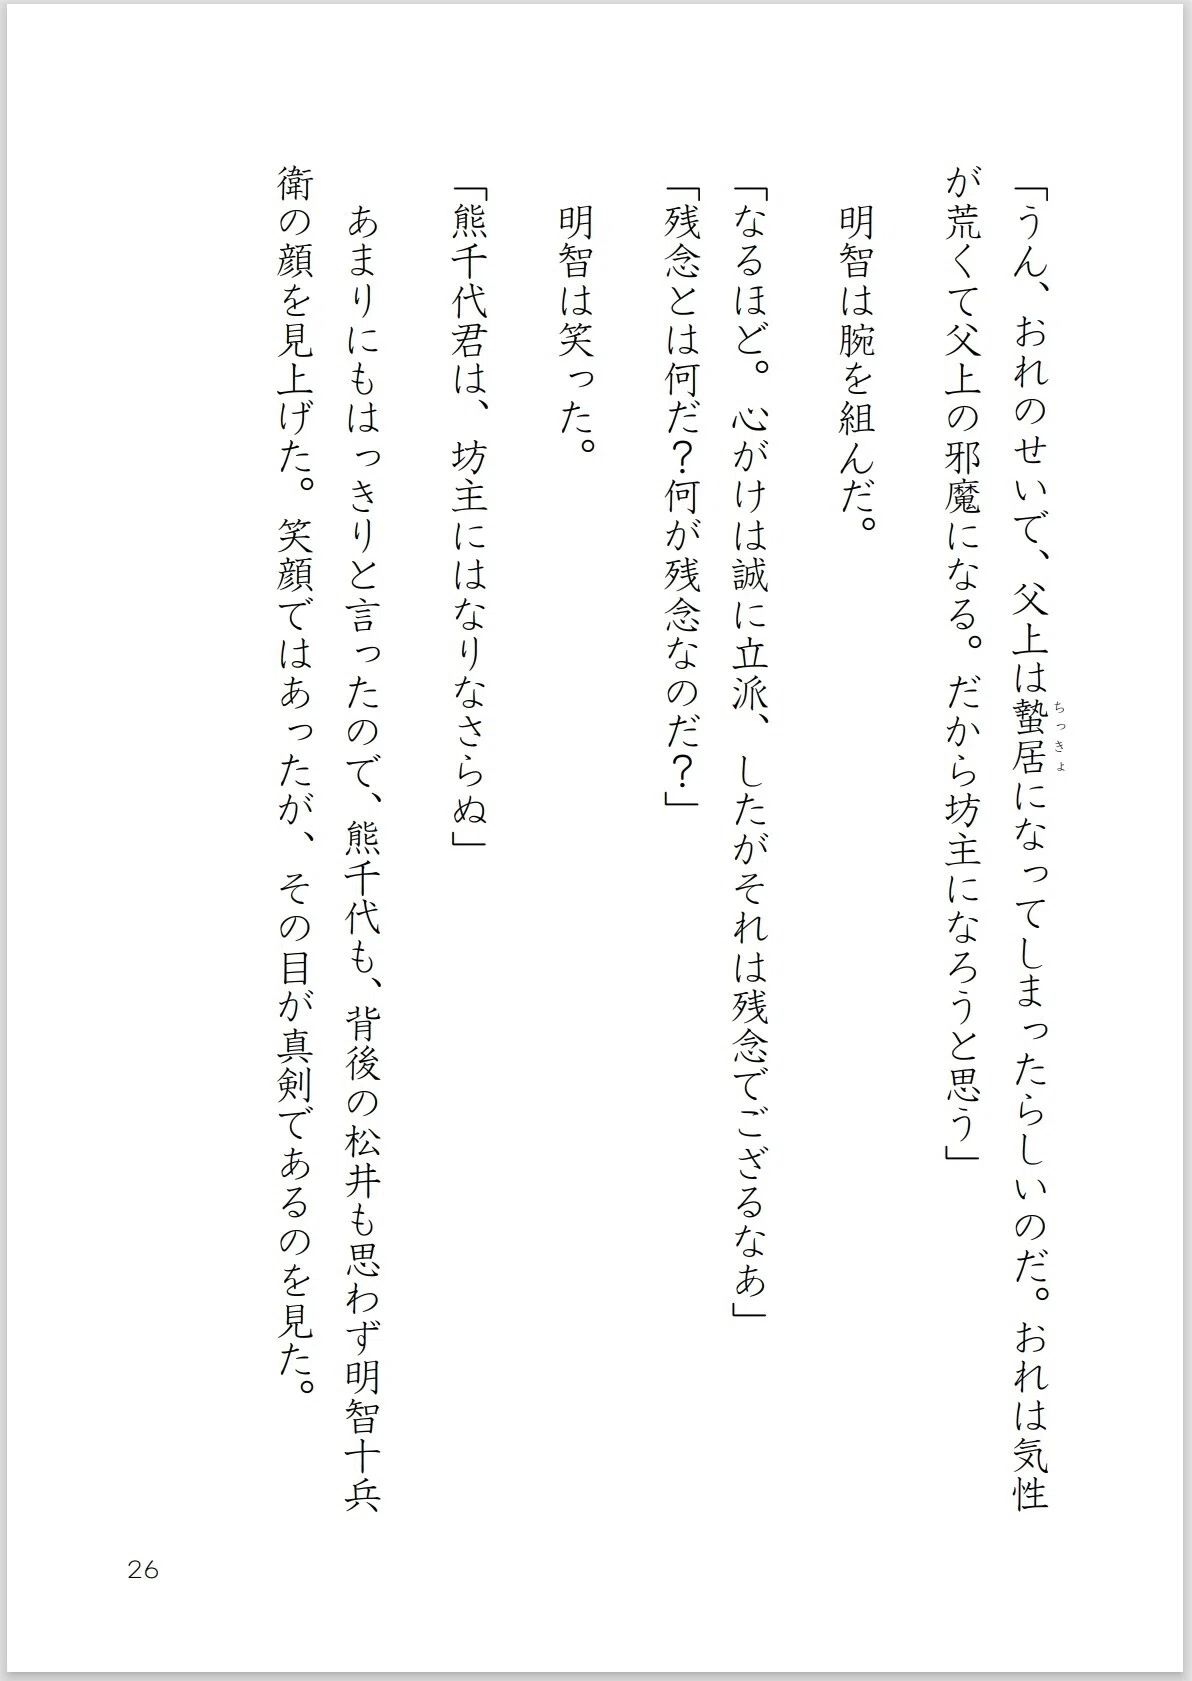 「うん、おれのせいで、父上は蟄居になってしまったらしいのだ。おれは気性
ちっきょ
が荒くて父上の邪魔になる。だから坊主になろうと思う」
明智は腕を組んだ。
「なるほど。心がけは誠に立派、したがそれは残念でござるなあ」
「残念とは何だ?何が残念なのだ?」
明智は笑った。
「熊千代君は、坊主にはなりなさらぬ」
あまりにもはっきりと言ったので、熊千代も、背後の松井も思わず明智十兵
衛の顔を見上げた。笑顔ではあったが、その目が真剣であるのを見た。
26